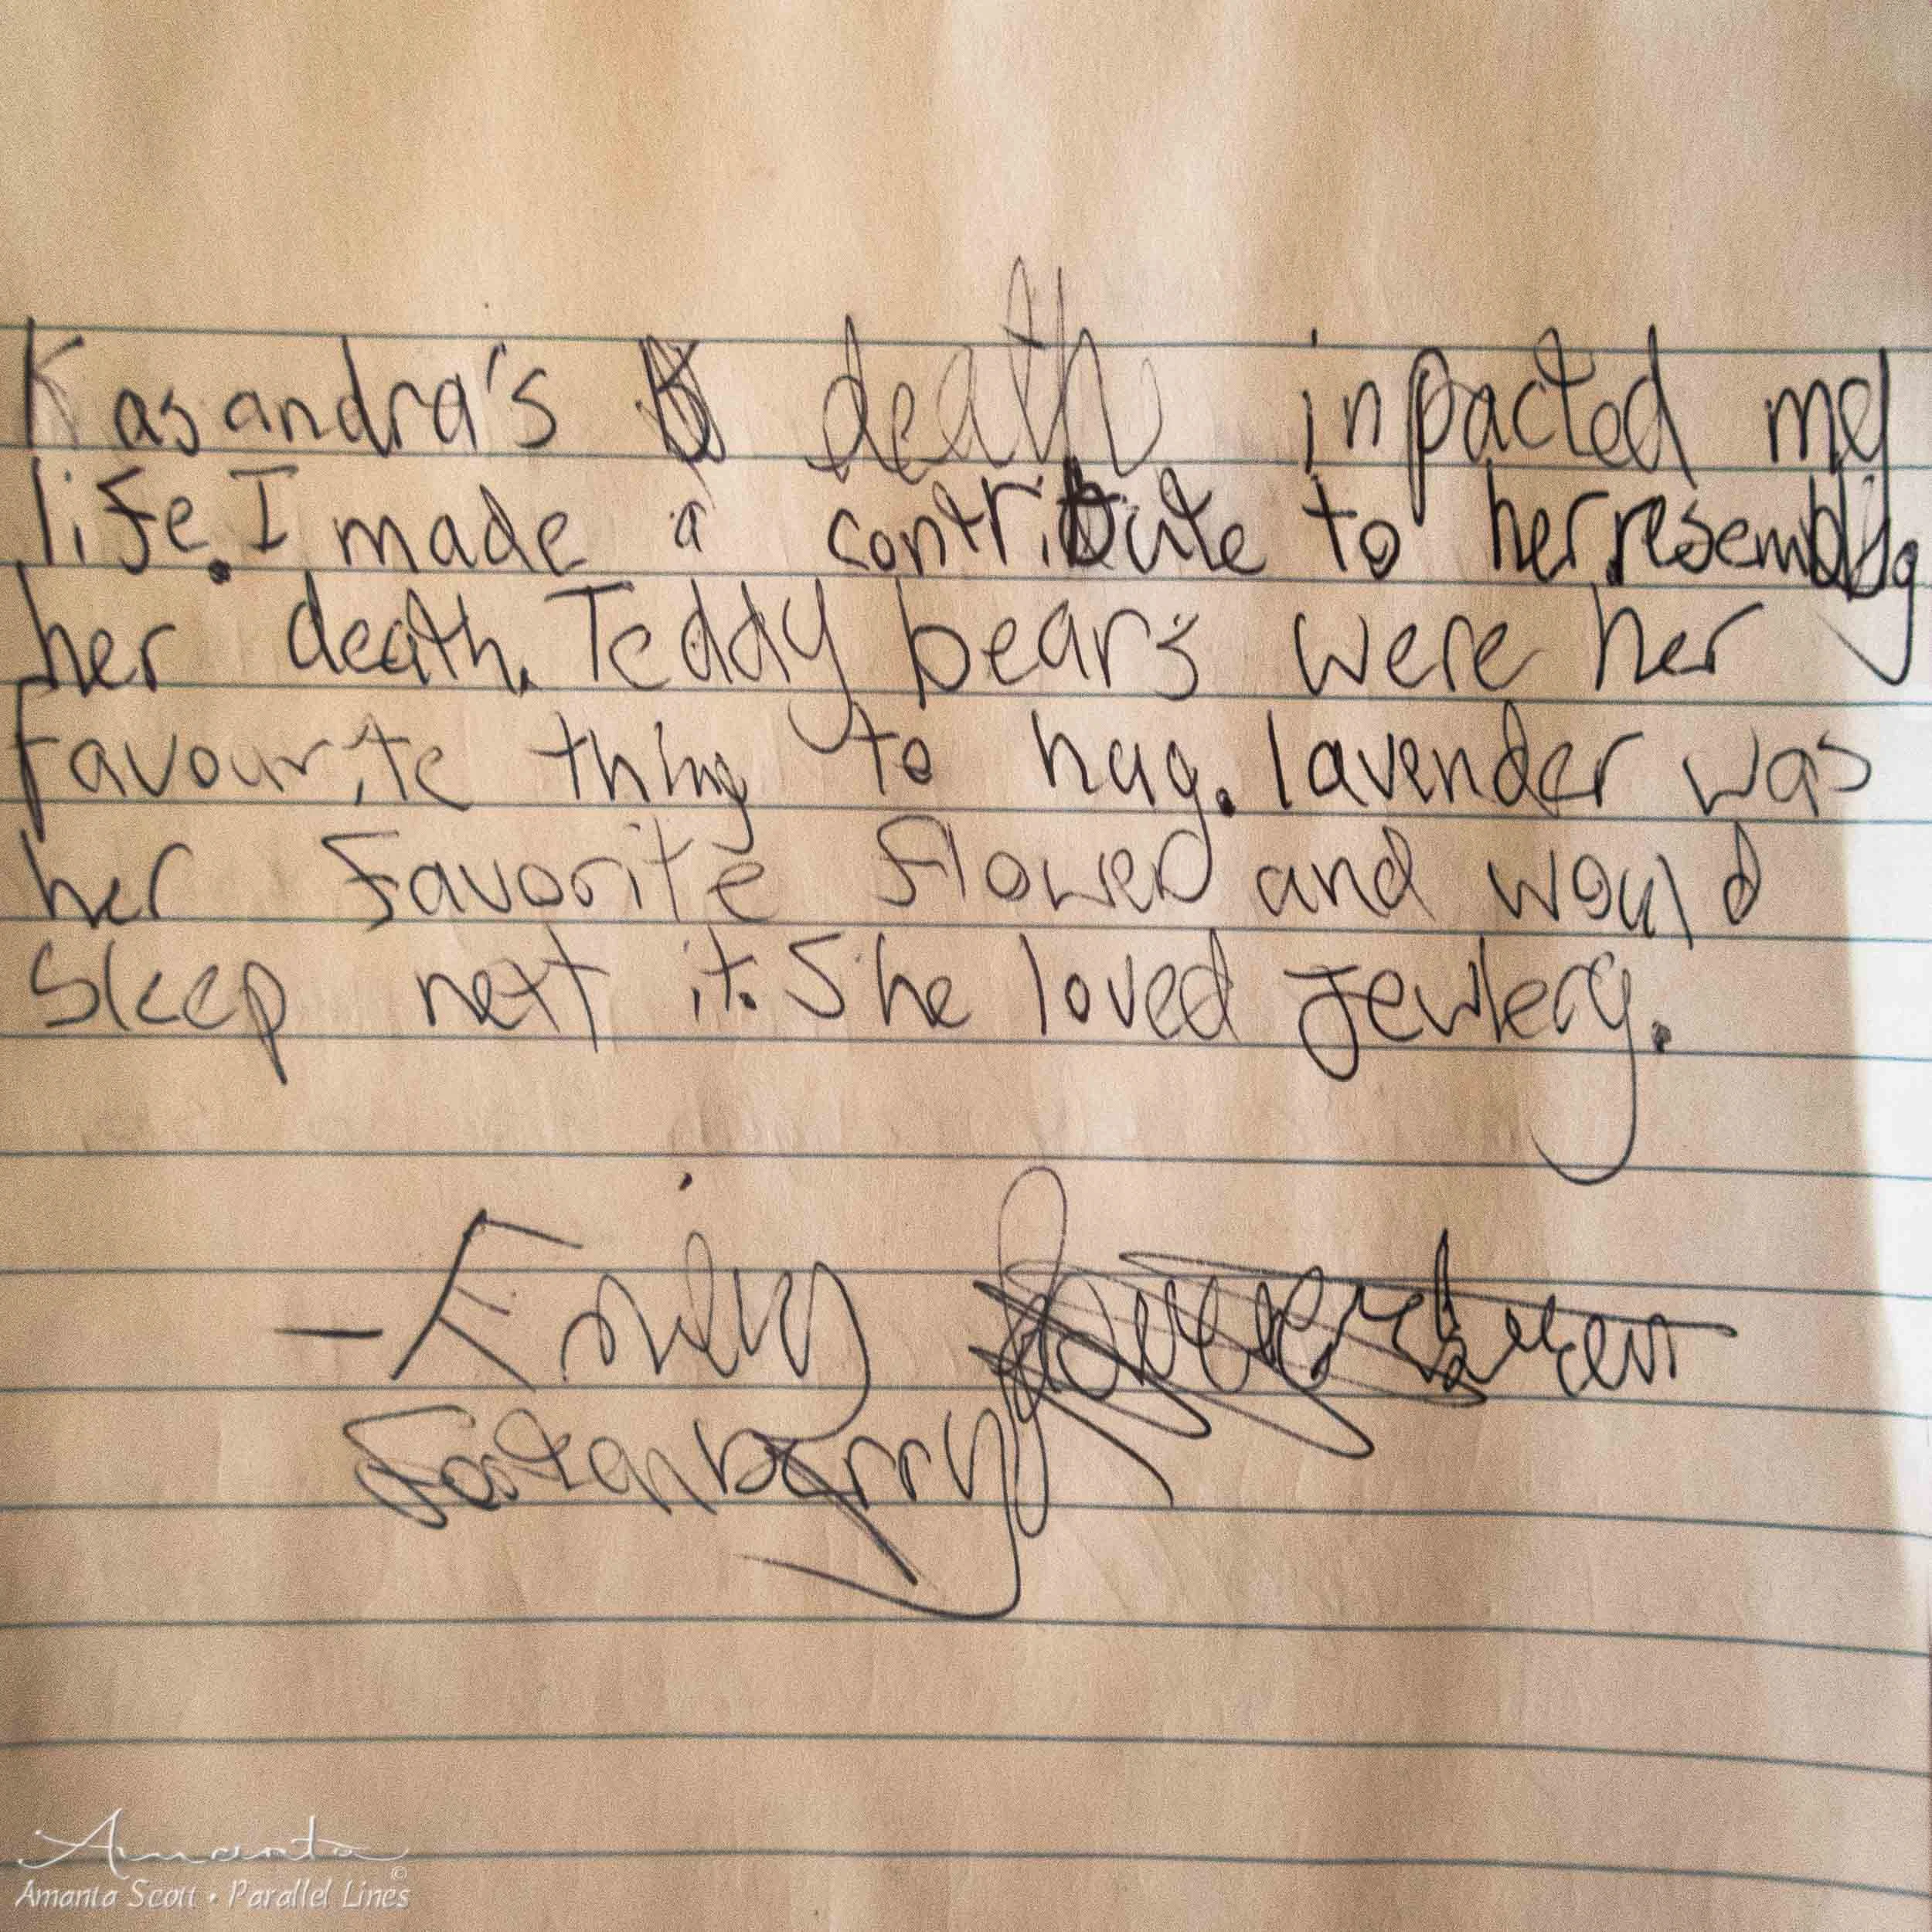 Kasandra's death inpacted my
life. I made a contribute to her resembly
her death. Teddy bears were her
favourite thing to hug. lavender was
her favorite flower and would
sleep next it. She loved Jewlery.
— Emily
Fastenberry
Amanta ©
Amanta Scott • Parallel Lines